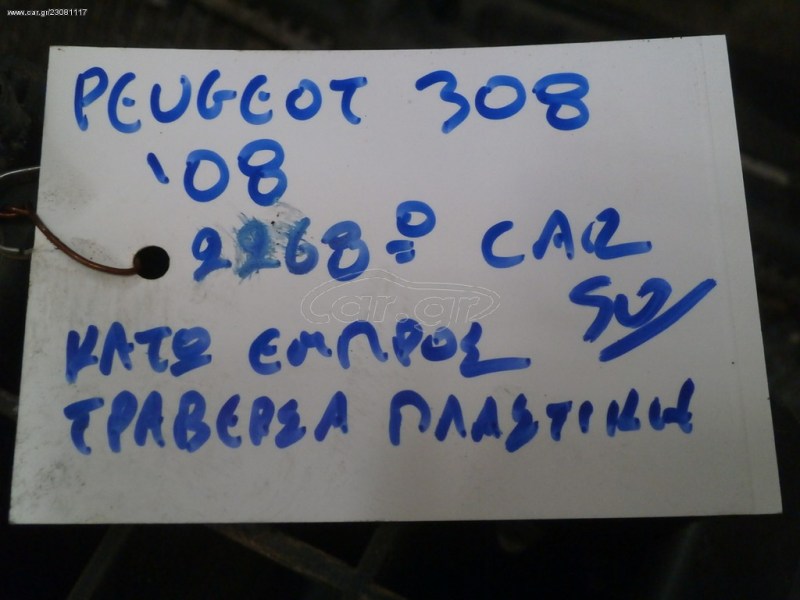 www.car.gr/23081117
PEUGEOT 308
'08
2268 CAR
50/
car.gr
ΚΑΤΩ ΕΜΠΡΟΣ
ΤΡΑΒΕΡΣΑ ΠΛΑΣΤΙΚΗ